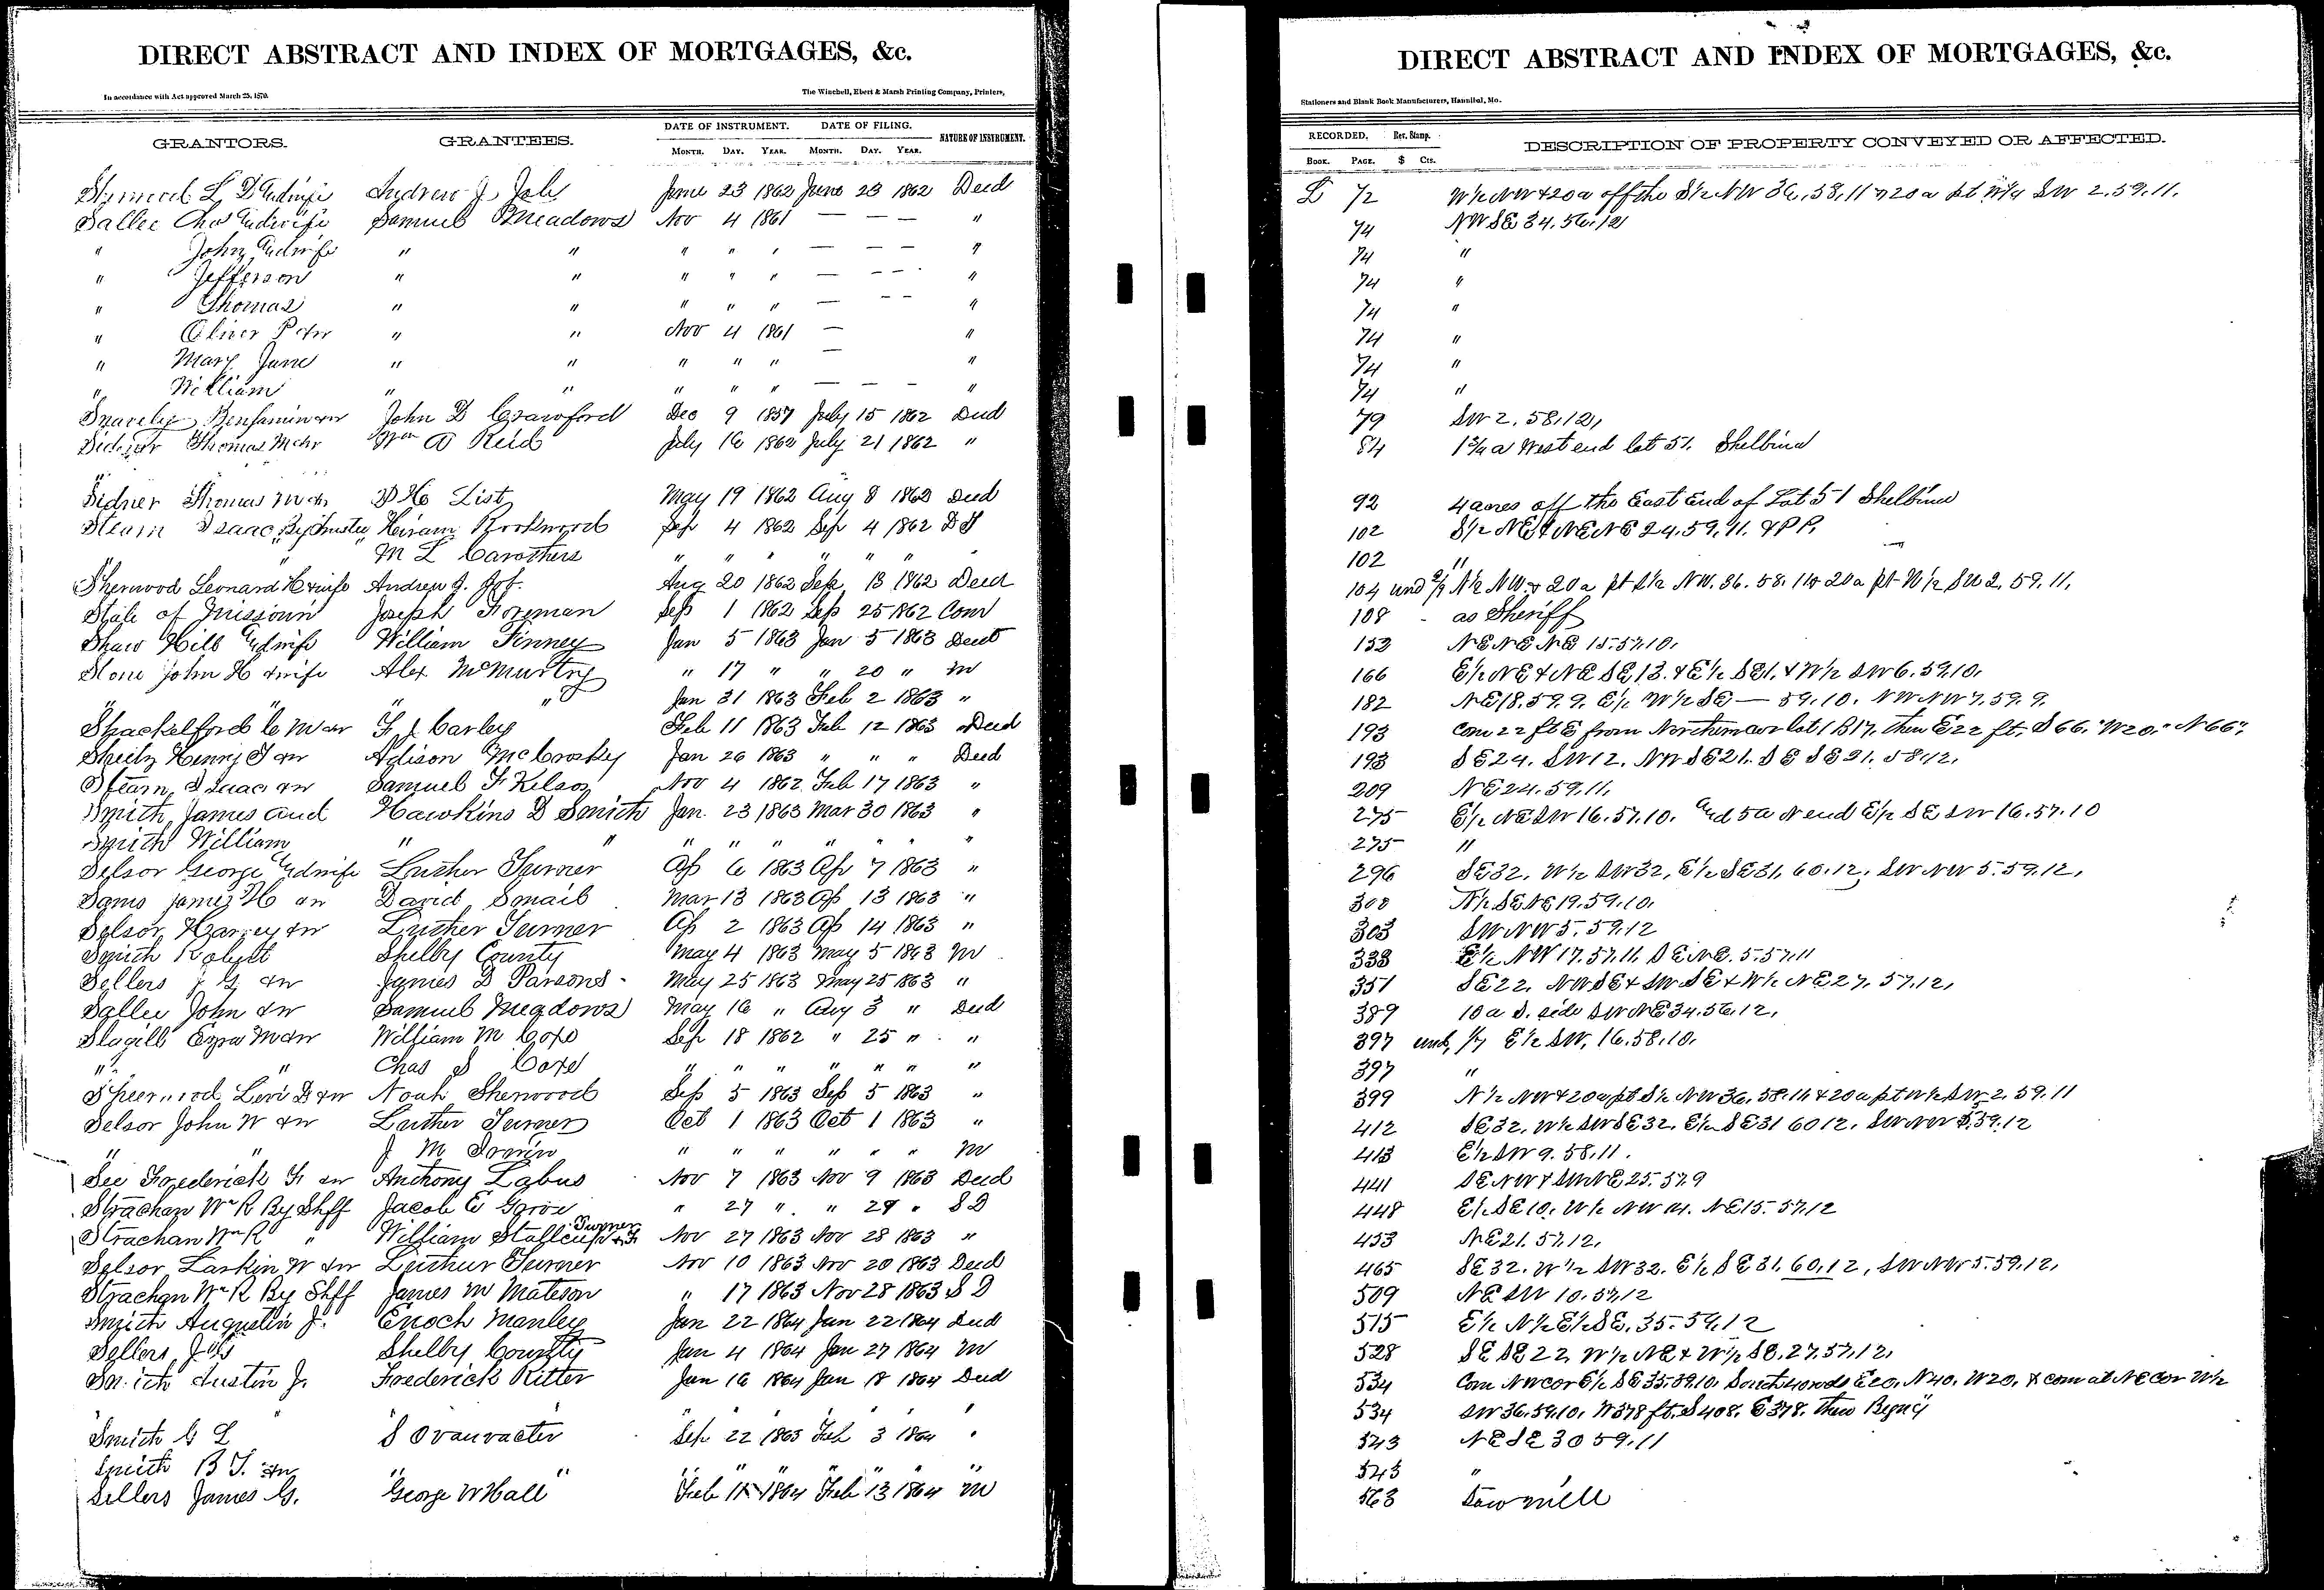 DIRECT ABSTRACT AND INDEX OF MORTGAGES, &c.
In accordance with Act approved March 25, 1870.
The Winchell, Ebert & Marsh Printing Company, Printers,
GRANTORS. GRANTEES. DATE OF INSTRUMENT. DATE OF FILING. NATURE OF INSTRUMENT.
MONTH. DAY. YEAR. MONTH. DAY. YEAR.
L D Andwife Andrew J Job June 23 1862 June 23 1862 Deed
Sallee Chas Andwife Samuel Meadows Nov 4 1861 — — — "
" John Andwife " " " " " — — — "
" Jefferson " " " " " — — — "
" Thomas " " " " " — — — "
" Oliver P &w " " Nov 4 1861 — "
" Mary Jane " " " " " — "
" William " " " " " — — — "
Snavely Benjamin &w John D Crawford Dec 9 1857 July 15 1862 Deed
Thomas M &w Wm A Reid July 16 1862 July 21 1862 "
Sidner Thomas M &w List May 19 1862 Aug 8 1862 Deed
Stearn Isaac, By Trustee Hiram Rookwood Sep 4 1862 Sep 4 1862 D T
" M L Carothers " " " " " "
Sherwood Leonard H &wife Andrew J. Job. Aug 20 1862 Sep 13 1862 Deed
State of Missouri Joseph Foreman Sep 1 1862 Sep 25 1862 Com
Shaw Hill Andwife William Finney Jan 5 1863 Jan 5 1863 Deed
Stone John H &wife Alex McMurtry " 17 " " 20 " M
" " " " Jan 31 1863 Feb 2 1863 "
Shackelford C M &w F J Carley Feb 11 1863 Feb 12 1863 Deed
Sheetz Henry T &w Adison McCrosky Jan 26 1863 " " " Deed
Stearn, Isaac &w Samuel F Kelso Nov 4 1862 Feb 17 1863 "
Smith, James and Hawkins D Smith Jan. 23 1863 Mar 30 1863 "
Smith William " " " " " " " " "
Selsor George Andwife Luther Turner Ap 6 1863 Ap 7 1863 "
Sams James H &w David Smail Mar 13 1863 Ap 13 1863 "
Selsor, Harvey &w Luther Turner Ap 2 1863 Ap 14 1863 "
Smith Shelby County May 4 1863 May 5 1863 M
Sellers J G. &w James D Parsons May 25 1863 May 25 1863 "
Sallee John &w Samuel Meadows May 16 " Aug 3 " Deed
Slagill Ezra M &w William M Coxe Sep 18 1862 " 25 " "
" " Chas S Coxe " " " " " " "
Sheerwood, Levi D &w Noah Sherwood Sep 5 1863 Sep 5 1863 "
Selsor John W &w Luther Turner Oct 1 1863 Oct 1 1863 "
" " J M Irwin " " " " " " M
See Frederick F. &w Anthony Labus Nov 7 1863 Nov 9 1863 Deed
Strachan Wm R By Shff Jacob E " 27 " " 27 " S D
Strachan Wm R " William Stallcup & F Turner Nov 27 1863 Nov 28 1863 "
Selsor, Larkin W &w Luther Turner Nov 10 1863 Nov 20 1863 Deed
Strachan Wm R By Shff James M Mateson " 17 1863 Nov 28 1863 S D
Smith Augustin J. Enoch Manley Jan 22 1864 Jan 22 1864 Deed
Sellers, J G Shelby County Jan 4 1864 Jan 27 1864 M
Smith Austin J. Frederick Ritter Jan 16 1864 Jan 18 1864 Deed
" " " " " " "
Smith G L S Ovanvacter Sep 22 1863 Feb 3 1864 "
Smith B T. &w " " " " " " " " "
Sellers James G. George W Hall Feb 1864 Feb 13 1864 M
DIRECT ABSTRACT AND INDEX OF MORTGAGES, &c.
Stationers and Blank Book Manufacturers, Hannibal, Mo.
RECORDED. Rev. Stamp. DESCRIPTION OF PROPERTY CONVEYED OR AFFECTED.
BOOK. PAGE. $ Cts.
L 72 W½ NW & 20 a off the S½ NW 36, 58, 11 & 20 a pt W½ SW 2. 59. 11.
74 NW SE 34. 56. 12
74 "
74 "
74 "
74 "
74 "
74 "
79 SW 2, 58, 12,
84 1¾ a West end lot 51. Shelbina
92 4 acres off the East End of Lot 51 Shelbina
102 S½ NE & NE NE 24. 59. 11. & P P.
102 "
104 und 2/7 N½ NW. & 20 a pt S½ NW. 36. 58. 11 & 20 a pt W½ SW 2, 59. 11,
108 as Sheriff
153 NE NE NE 15. 57. 10.
166 E½ NE & NE SE, 13. & E½ SE 1, & W½ SW 6. 59. 10.
182 NE 18. 59. 9. E½ W½ SE — 59. 10. NW NW 7. 59. 9.
193 Com 22 ft E from Northern cor lot 1 B 17. then E 22 ft. S 66. " W 20. " N 66".
193 SE 24. SW 12. NW SE 21. SE SE 21. 58. 12.
209 NE 24. 59. 11.
275 E½ NE SW 16. 57. 10. And 5a N end E½ SE SW 16. 57. 10
275 "
296 SE 32. W½ SW 32, E½ SE 31, 60. 12, SW NW 5. 59. 12.
300 N½ SE NE 19. 59. 10.
303 SW NW 5. 59. 12
338 E½ NW 17. 57. 11. SE NE. 5. 57. 11
351 SE 22. NW SE & SW SE & W½ NE 27. 57. 12,
389 10 a S. side SW NE 34. 56. 12,
397 und, 1/7 E½ SW, 16. 58. 10.
397 "
399 N½ NW & 20 a pt S½ NW 36, 58. 11 & 20 a pt W½ SW 2, 59. 11
412 SE 32, W½ SW SE 32. E½ SE 31 60 12. SW NW 5. 59. 12
413 E½ SW 9. 58. 11.
441 SE NW & SW NE 25. 57. 9
448 E½ SE 10, W½ NW 14. NE 15. 57. 12
453 NE 21. 57. 12.
465 SE 32. W½ SW 32. E½ SE 31. 60. 12, SW NW 5. 59. 12.
509 NE SW 10. 57. 12
515 E½ N½ E½ SE. 35. 59. 12
528 SE SE 22, W½ NE & W½ SE. 27. 57. 12.
534 Com NW cor E½ SE 35. 59. 10. South 40 rods E 20. N 40. W 20. & com at NE Cor W½
534 SW 36. 59. 10. W 378 ft. S 408. E 378. then Begn'g
543 NE SE 30 59. 11
543 "
563 Saw mill